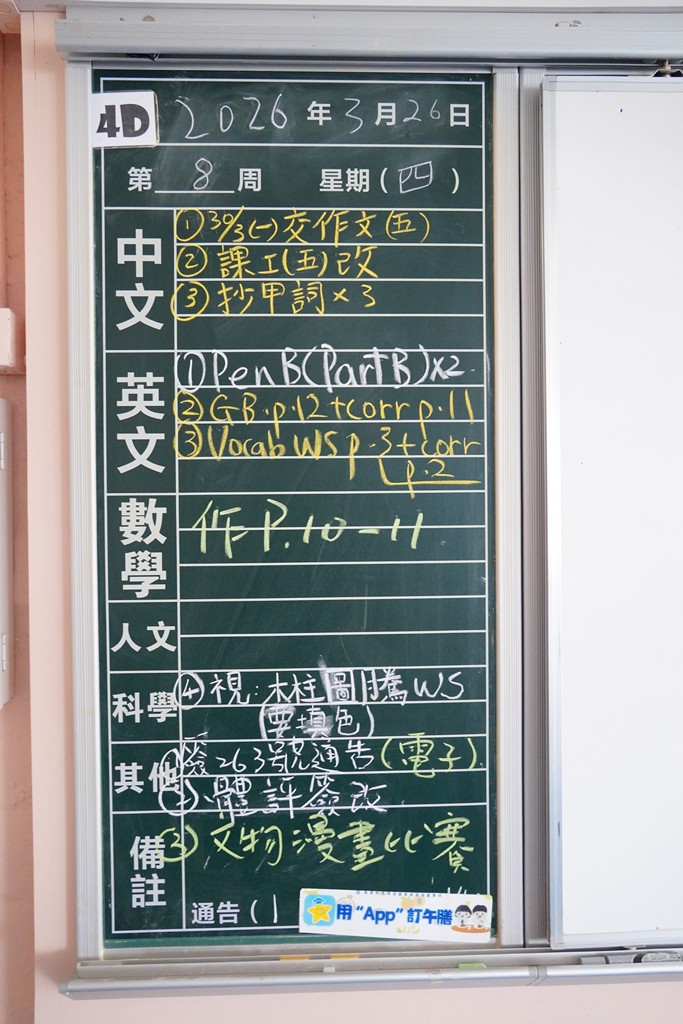 4D 2026年3月26日
第8周 星期(四)
中文
①30/3(一)交作文(五)
②課工(五)改
③抄甲詞×3
英文
①Pen B(Part B)×2
②GB.p.12+corr p.11
③Vocab WS p.3+corr
p.2
數學
作P.10-11
人文
科學
④視:木柱圖騰WS
(要填色)
其他
①簽263號通告(電子)
②體評簽改
備註
③文物漫畫比賽
通告(1
用“App”訂午膳